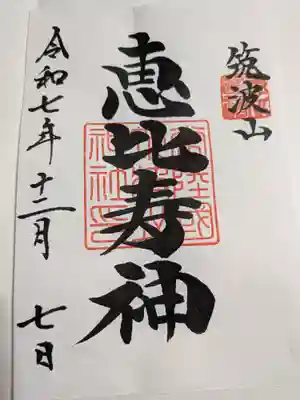 筑波山
恵比寿神
令和七年十二月七日